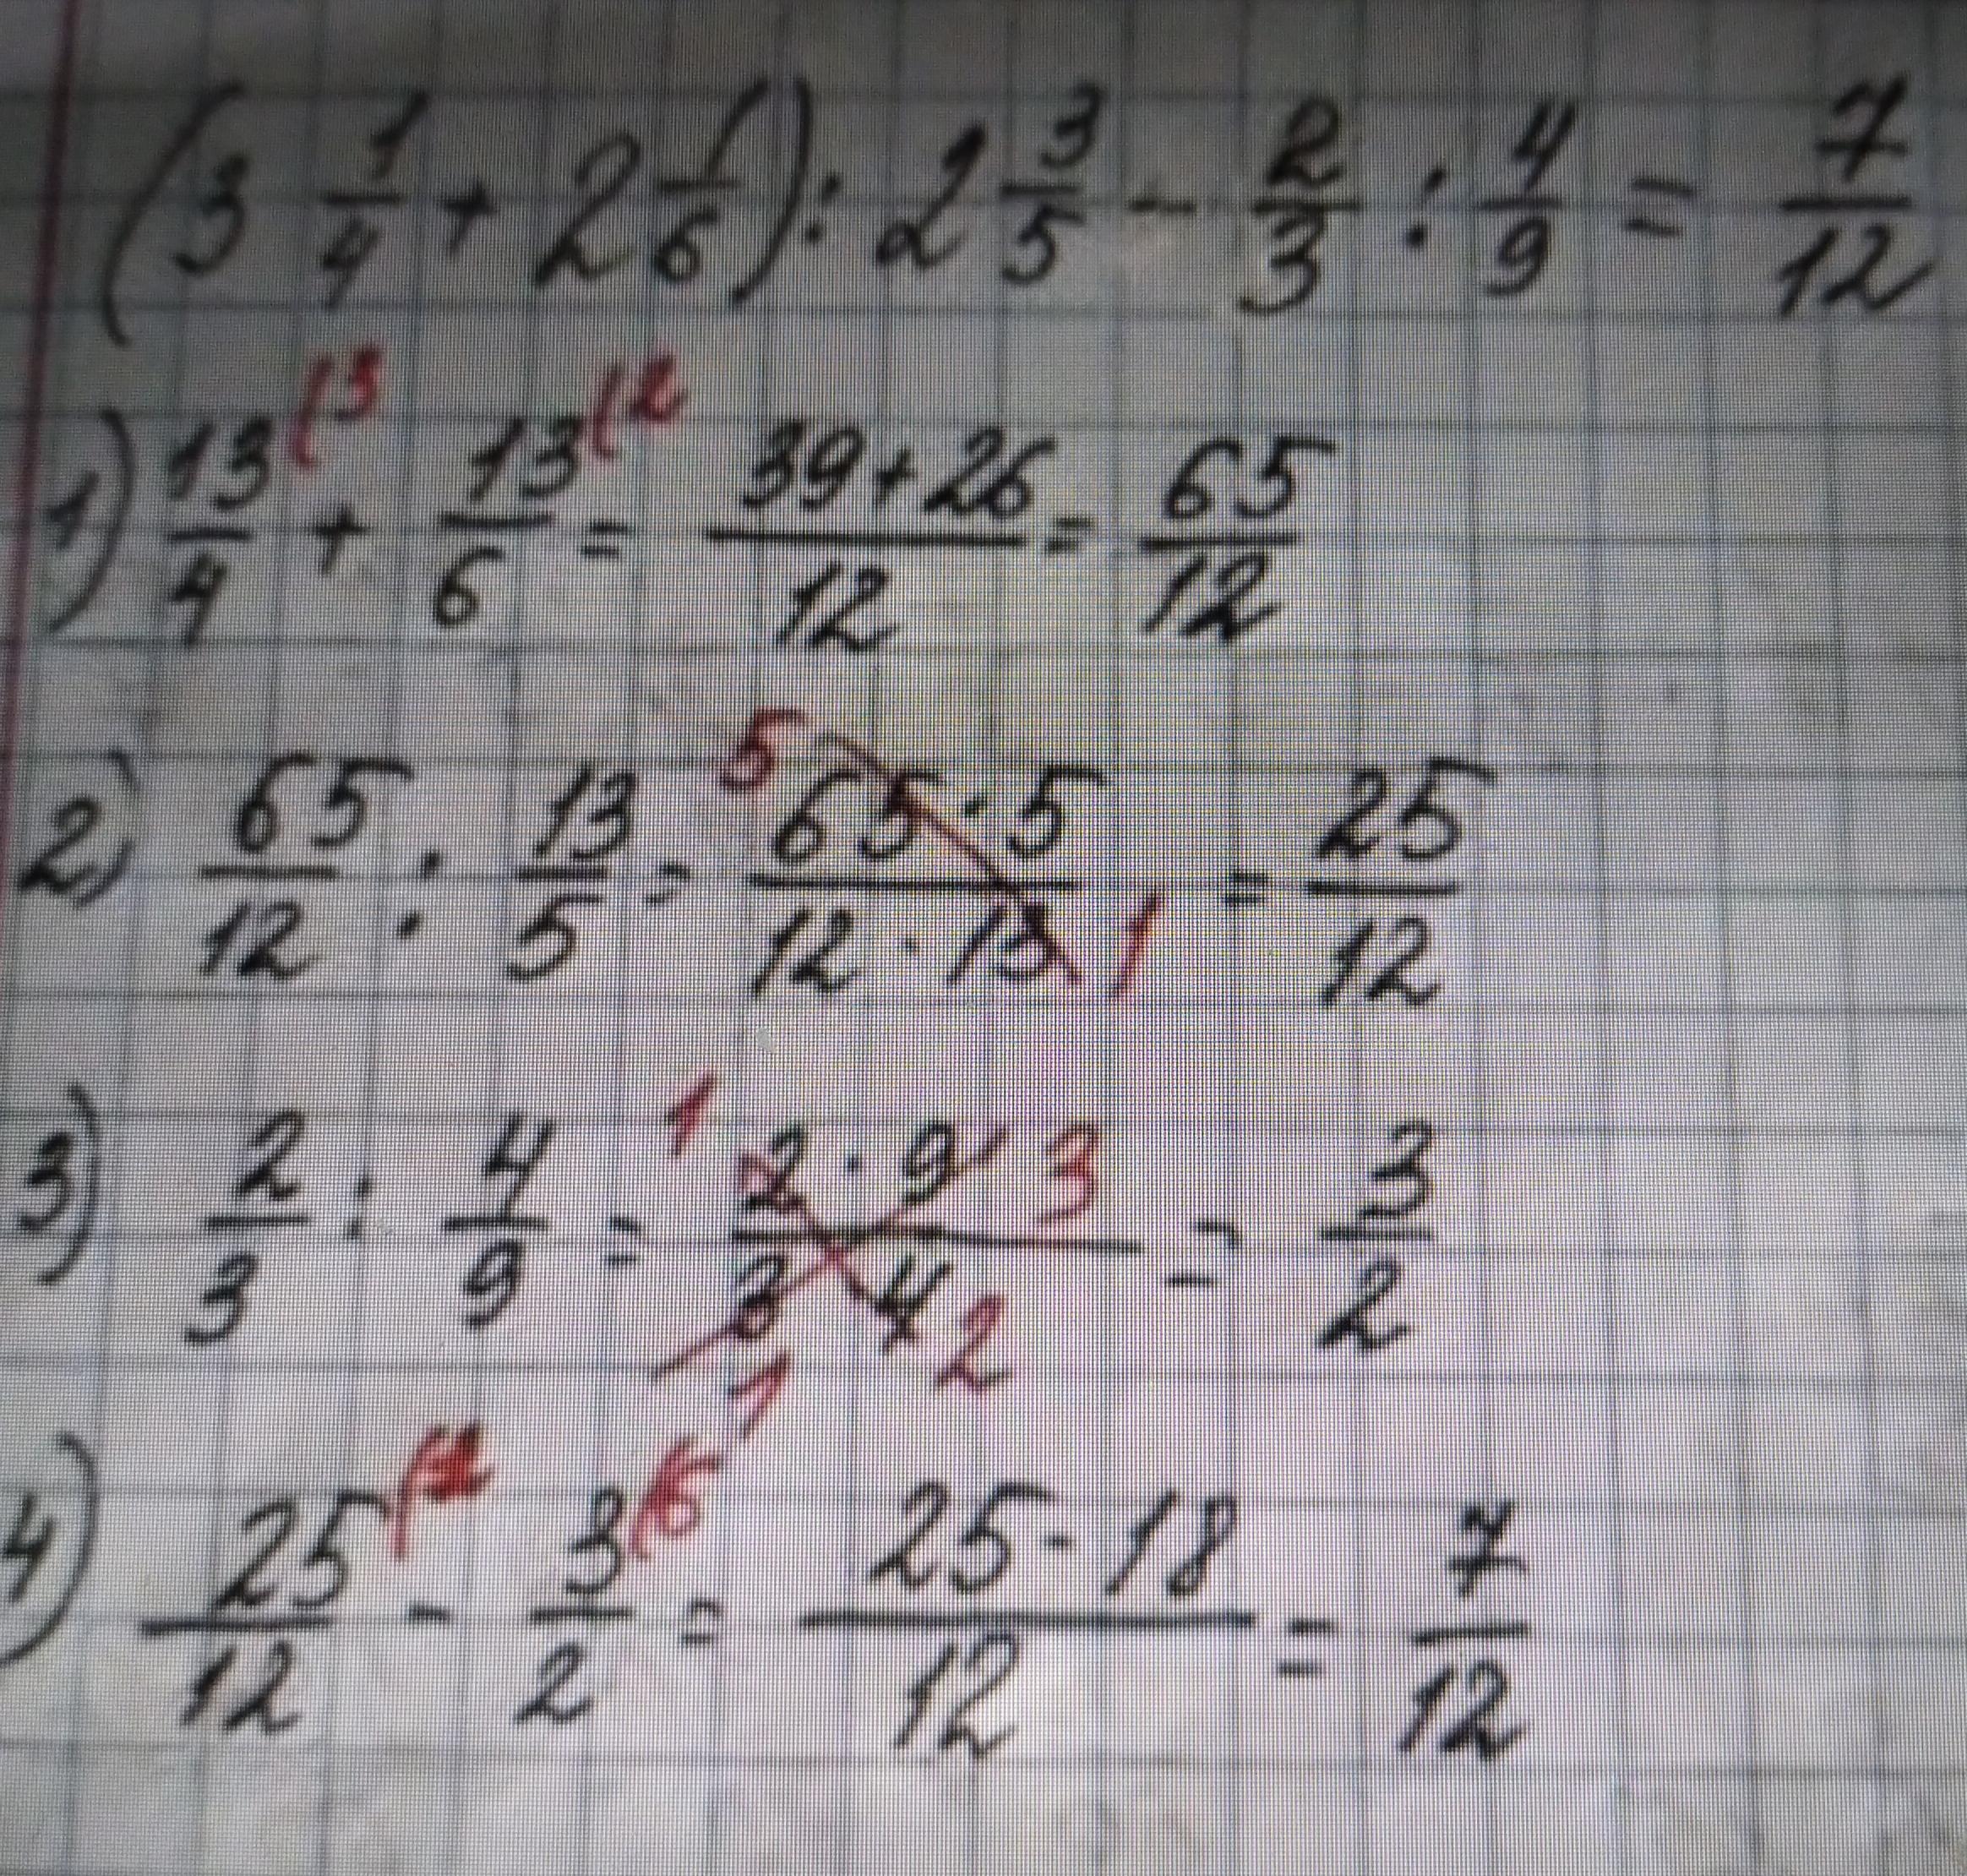 (3 1/4 + 2 1/6) : 2 3/5 - 2/3 : 4/9 = 7/12
1) 13/4 (3 + 13/6 (2 = 39+26/12 = 65/12
2) 65/12 : 13/5 = 5 65·5/12·13 1 = 25/12
3) 2/3 : 4/9 = 1 2·9 3/3 1 4 2 = 3/2
4) 25/12 - 3/2 (6 = 25-18/12 = 7/12